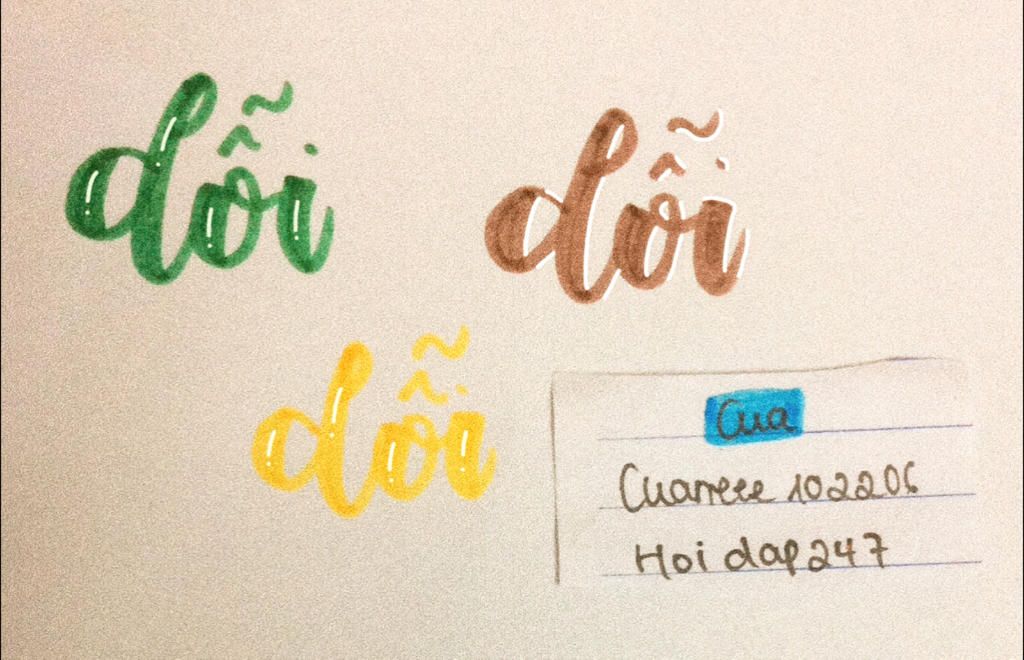 dỗi
dỗi
dỗi
Cua
Cuarrece 102206
Hoi dap247